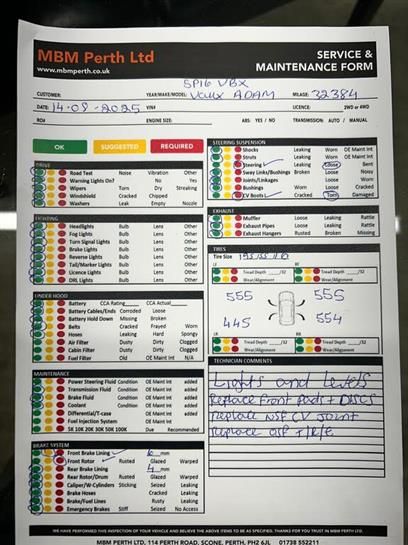 MBM Perth Ltd
www.mbmperth.co.uk
SERVICE &
MAINTENANCE FORM
SP16 VBX
CUSTOMER: YEAR/MAKE/MODEL: VAUX ADAM MILAGE: 32384
DATE: 14-08-2025 VIN# LICENCE: 2WD or 4WD
RO# ENGINE SIZE: ABS: YES / NO TRANSMISSION: AUTO / MANUAL
OK SUGGESTED REQUIRED
DRIVE
Road Test Noise Vibration Other
Warning Lights On? No Yes
Wipers Torn Dry Streaking
Windshield Cracked Chipped
Washers Leak Empty Nozzle
LIGHTING
Headlights Bulb Lens Other
Fog Lights Bulb Lens Other
Turn Signal Lights Bulb Lens Other
Brake Lights Bulb Lens Other
Reverse Lights Bulb Lens Other
Tail/Marker Lights Bulb Lens Other
Licence Lights Bulb Lens Other
DRL Lights Bulb Lens Other
UNDER HOOD
Battery CCA Rating CCA Actual
Battery Cables/Ends Corroded Loose
Battery Hold Down Missing Broken
Belts Cracked Frayed Worn
Hoses Leaking Hard Spongy
Air Filter Dusty Dirty Clogged
Cabin Filter Dusty Dirty Clogged
Fuel Filter Old OE Maint Int N/A
MAINTENANCE
Power Steering Fluid Condition OE Maint Int added
Transmission Fluid Condition OE Maint Int added
Brake Fluid Condition OE Maint Int added
Coolant Condition OE Maint Int added
Differential/T-case OE Maint Int added
Fuel Injection System OE Maint Int
5K 10K 20K 30K 50K 100K Due Recommended
BRAKE SYSTEM
Front Brake Lining 6 mm
Front Rotor Rusted Glazed Warped
Rear Brake Lining 4 mm
Rear Rotor/Drum Rusted Glazed Warped
Caliper/W-Cylinders Sticking Seized Leaking
Brake Hoses Cracked Leaking
Brake/Fuel Lines Rusty Leaking
Emergency Brakes Stiff Seized No Access
STEERING SUSPENSION
Shocks Leaking Worn OE Maint Int
Struts Leaking Worn OE Maint Int
Steering Leaking Loose Bent
Sway Links/Bushings Broken Loose Noisy
Joints/Linkages Worn Loose
Bushings Worn Loose Cracked
CV Boots Cracked Torn Damaged
EXHAUST
Muffler Loose Leaking Rattle
Exhaust Pipes Loose Leaking Rattle
Exhaust Hangers Rusted Broken Missing
TIRES
Tire Size
LF Tread Depth /32 RF Tread Depth /32
Wear/Alignment Wear/Alignment
555 555
445 554
LR Tread Depth /32 RR Tread Depth /32
Wear/Alignment Wear/Alignment
TECHNICIAN COMMENTS
Lights and Levels
Replace Front Pads + DISCS
Replace NSF CV JOINT
Replace OSF T/R/E
WE HAVE PERFORMED THIS INSPECTION OF YOUR VEHICLE AND BELIEVE THE ABOVE ITEMS TO BE AS SPECIFIED. THANKS FOR YOU TRUST IN MBM PERTH LTD.
MBM PERTH LTD, 114 PERTH ROAD, SCONE, PERTH, PH2 6JL 01738 552211